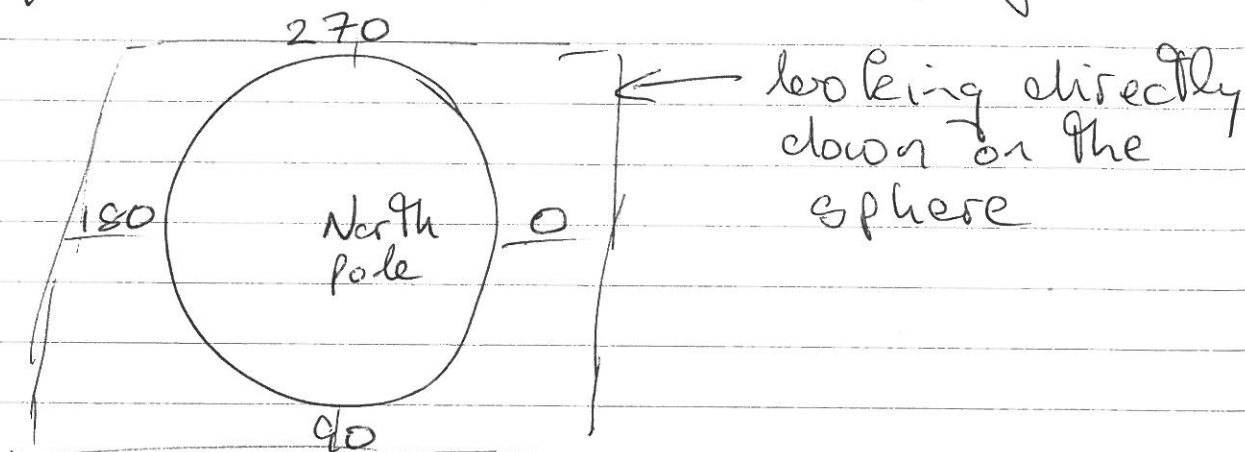 270
looking directly
down on the
sphere
180
North
pole
0
90